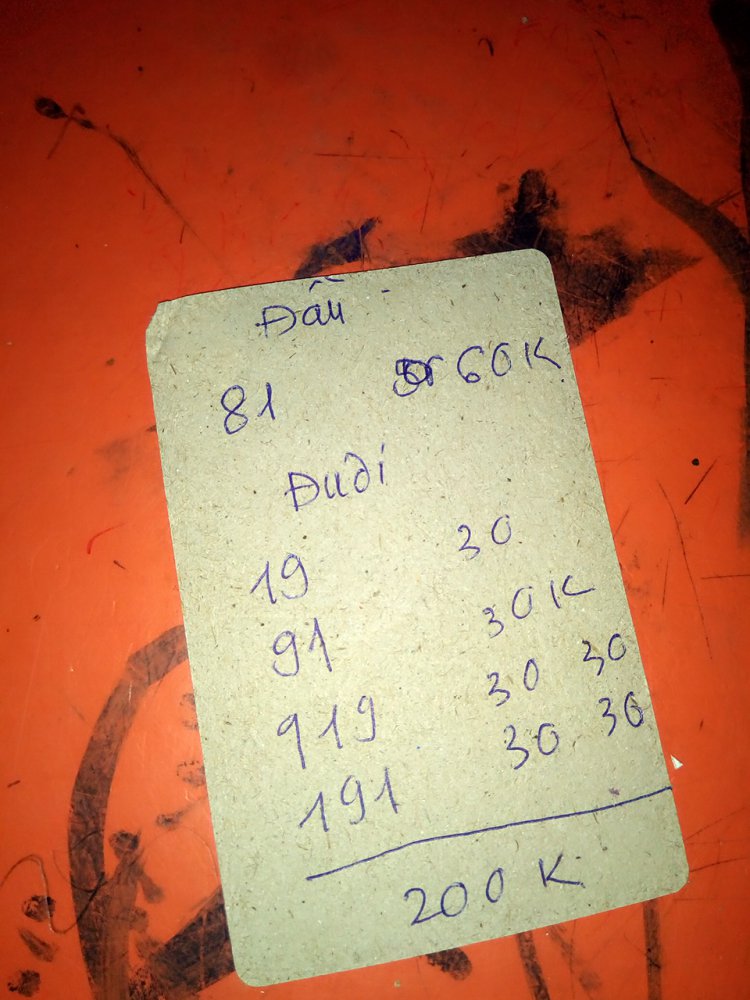 Đầu
81 60K
Đuôi
19 30
91 30K
919 30 30
191 30 30
200K